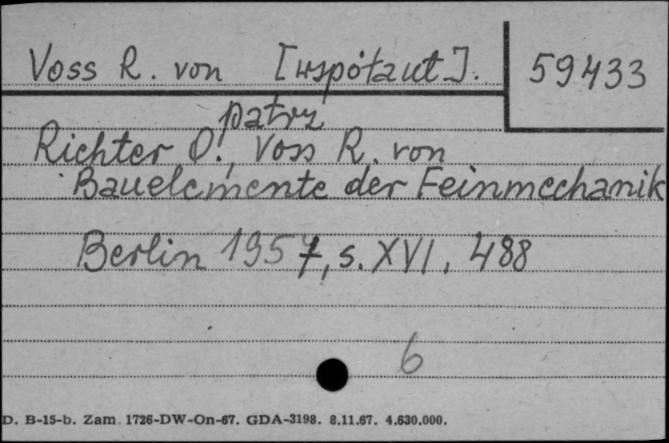 Voss R. von [współaut]. 59433
patrz
Richter O., Voss R. von
Bauelemente der Feinmechanik
Berlin 1957, s. XVI, 488
6
D. B-15-b. Zam. 1726-DW-On-67. GDA-3198. 8.11.67. 4.630.000.